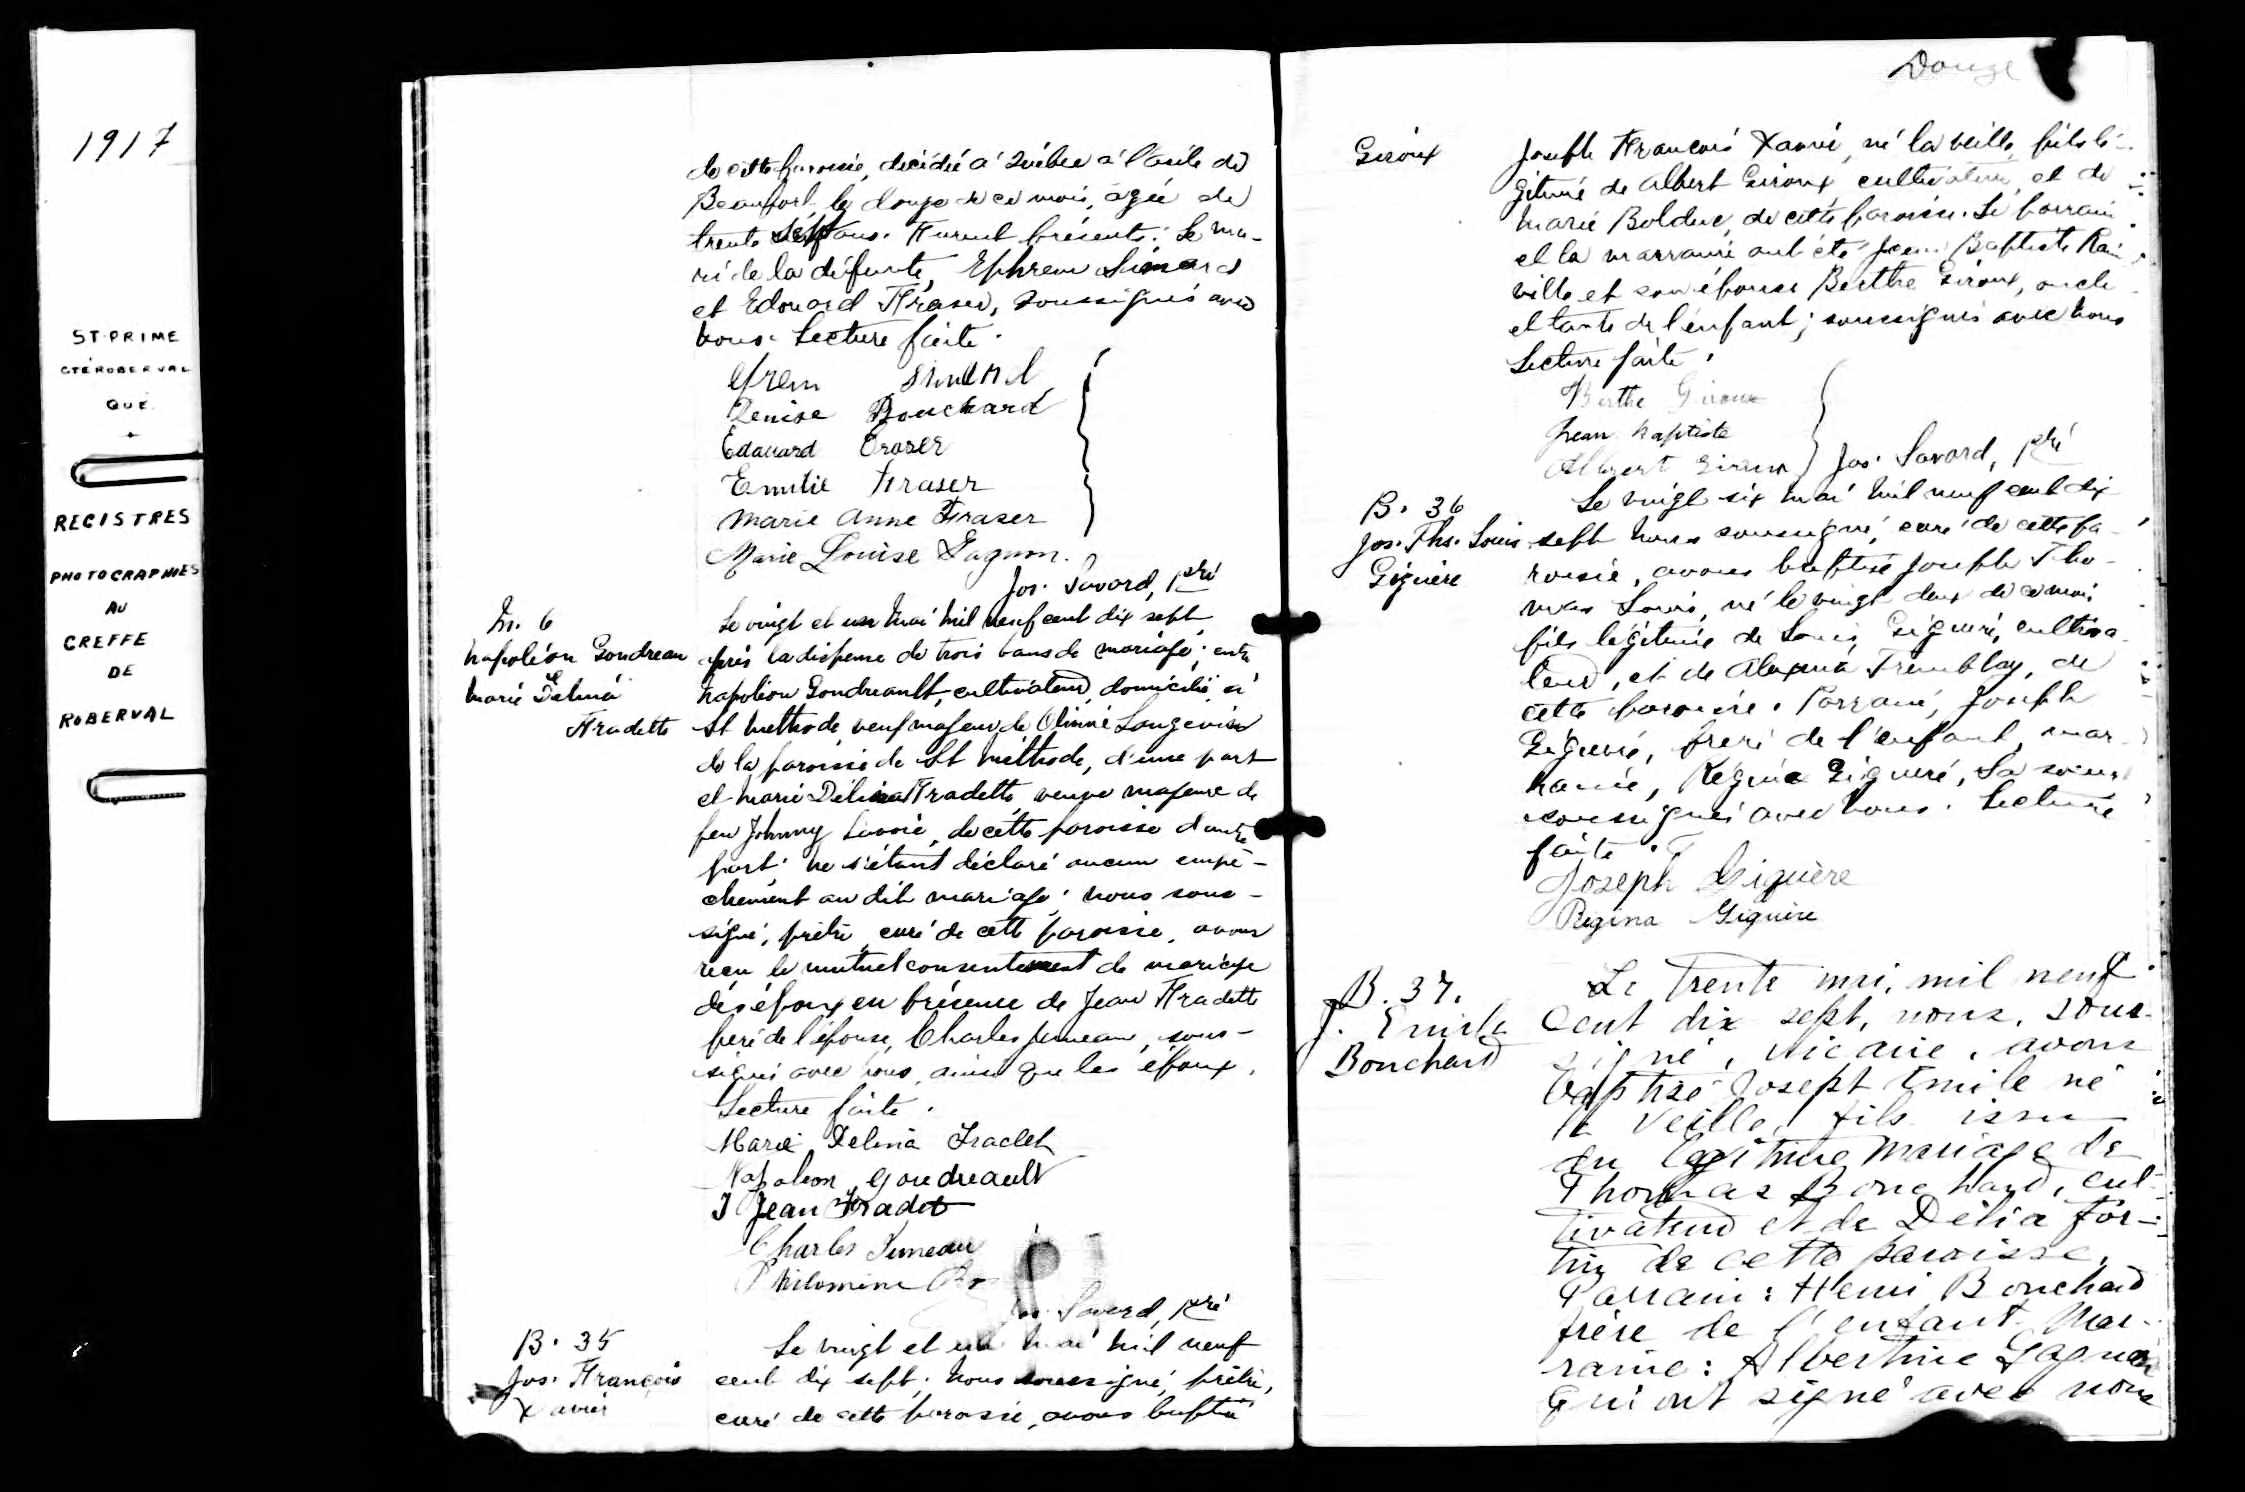 1917
ST-PRIME
CTÉ ROBERVAL
QUÉ.
REGISTRES
PHOTOGRAPHIES
AU
GREFFE
DE
ROBERVAL
de cette paroisse, décédée à Québec à l'asile de
Beauport le douze de ce mois, agée de
trente sept ans. Furent présents: Le ma-
ri de la défunte, Ephrem Simard
et Edouard Fraser, soussignés avec
nous. Lecture faite.
Efrem Simard
Denise Bouchard
Edouard Fraser
Emilie Fraser
Marie Anne Fraser
Marie Louise Gagnon.
Jos. Savard, ptre
M. 6
Napoléon Goudreau
Marie Delina
Fradette
Le vingt et un Mai mil neuf cent dix sept
après la dispense de trois bans de mariage; entre
Napoléon Goudreault, cultivateur, domicilié à
St Methode, veuf majeur de Olivine Langevin
de la paroisse de St Méthode, d'une part
et Marie Délina Fradette, veuve majeure de
feu Johnny Savoie, de cette paroisse d'autre
part; ne s'étant déclaré aucun empê-
chement au dit mariage; nous sous-
signé, prêtre curé de cette paroisse, avons
reçu le mutuel consentement de mariage
des époux en présence de Jean Fradette
père de l'épouse, Charles Juneau, sous-
signés avec nous, ainsi que les époux.
Lecture faite.
Marie Delina Fradet
Napoleon Goudreault
J Jean Fradet
Charles Juneau
Philomène
Jos. Savard, ptre
B. 35
Jos. François
Xavier
Le vingt et un Mai mil neuf
cent dix sept, nous soussigné, prêtre,
curé de cette paroisse, avons baptisé
Douze
Giroux
Joseph François Xavier, né la veille, fils lé-
gitime de Albert Giroux cultivateur, et de
Marie Bolduc, de cette paroisse. Le parrain
et la marraine ont été Jean Baptiste Rain
ville et son épouse Berthe Giroux, oncle
et tante de l'enfant; soussignés avec nous
Lecture faite.
Berthe Giroux
Jean Baptiste
Albert Giroux
Jos. Savard, ptre
B. 36
Jos. Ths. Louis
Giguère
Le vingt six mai mil neuf cent dix
sept nous soussigné, curé de cette pa-
roisse, avons baptisé Joseph Tho-
mas Louis, né le vingt deux de ce mois
fils légitime de Louis Giguère, cultiva-
teur, et de Alexina Tremblay, de
cette paroisse. Parrain, Joseph
Giguère, frère de l'enfant, mar-
raine, Régina Giguère, sa soeur
soussignés avec nous. Lecture
faite.
Joseph Giguère
Régina Giguère
B. 37.
J. Emile
Bouchard
Le trente mai, mil neuf
cent dix sept, nous, sous-
signé, vicaire, avons
baptisé Joseph Emile né
la veille, fils issu
du légitime mariage de
Thomas Bouchard, cul-
tivateur et de Délia For-
tin de cette paroisse.
Parrain: Henri Bouchard
frère de l'enfant. Mar-
raine: Albertine Gagnon
qui ont signé avec nous